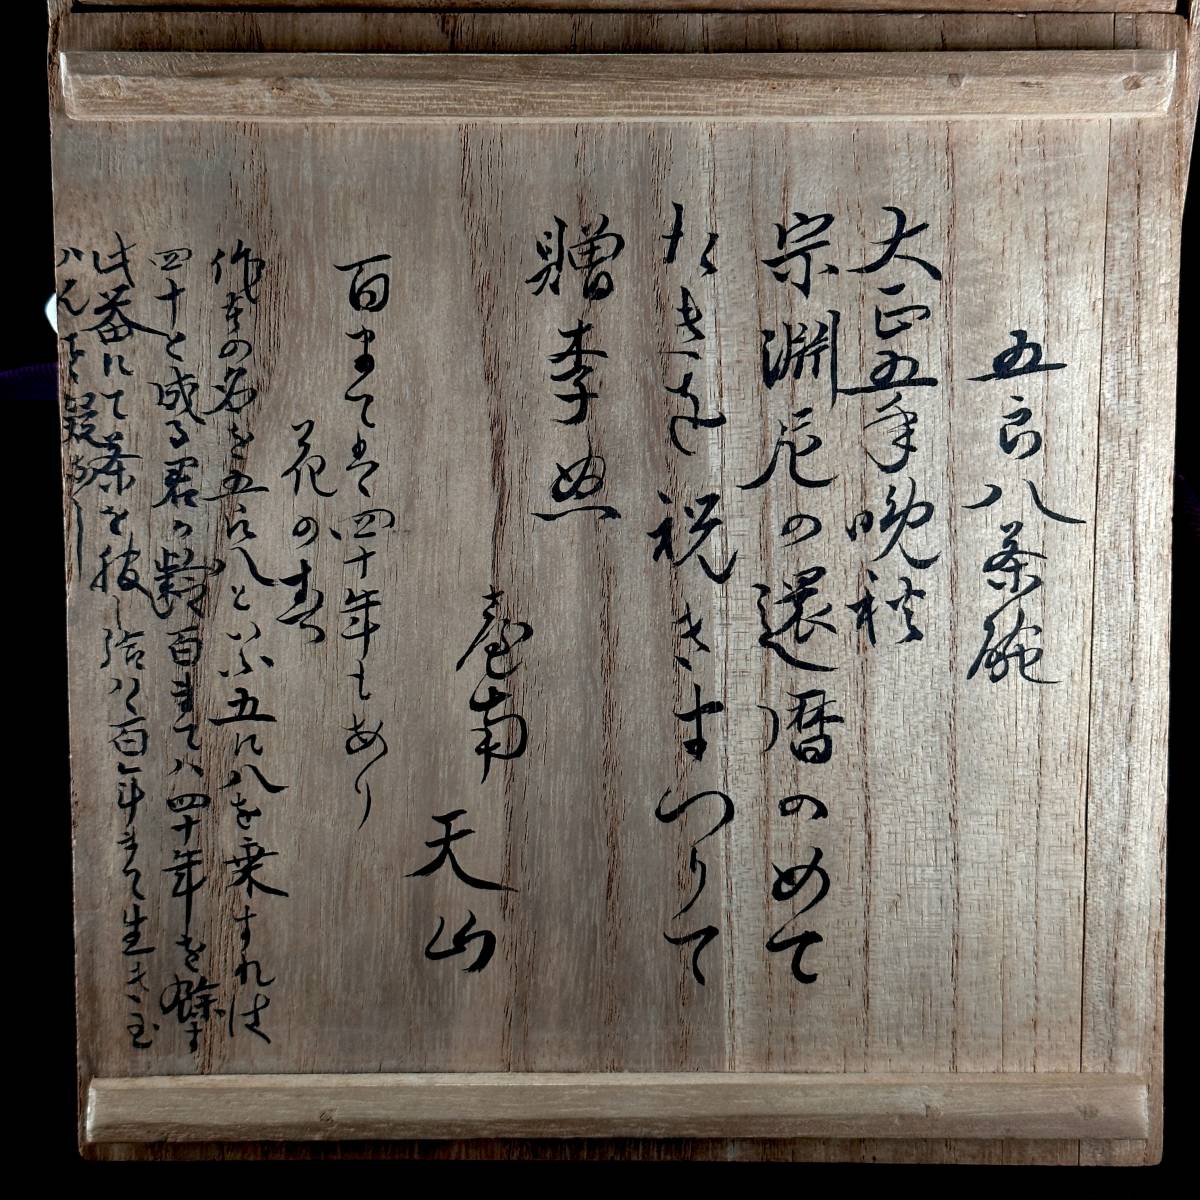 五良八茶碗
大正五年晩秋
宗淵尼の還暦のめて
たきを祝きまつりて
贈李
南
天山
百まては四十年もあり
花の春
作者の名を五良八といふ五に八を乗すれは
四十と成る君の齢百まては四十年を餘す
此器にて茶を服し給はゝ百年まて生き玉
はん事疑なし